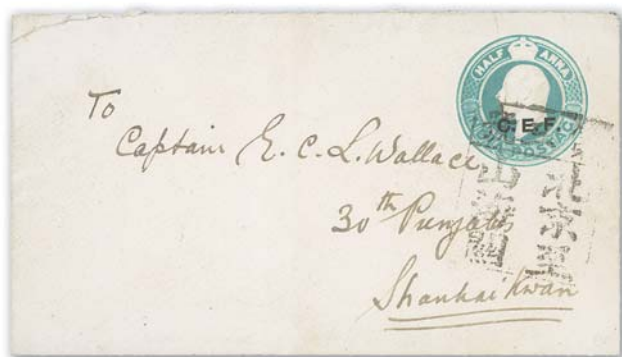 HALF ANNA
C.E.F.
INDIA POSTAGE
To
Captain E. C. L. Wallace
30th Punjabis
Shanhaikwan